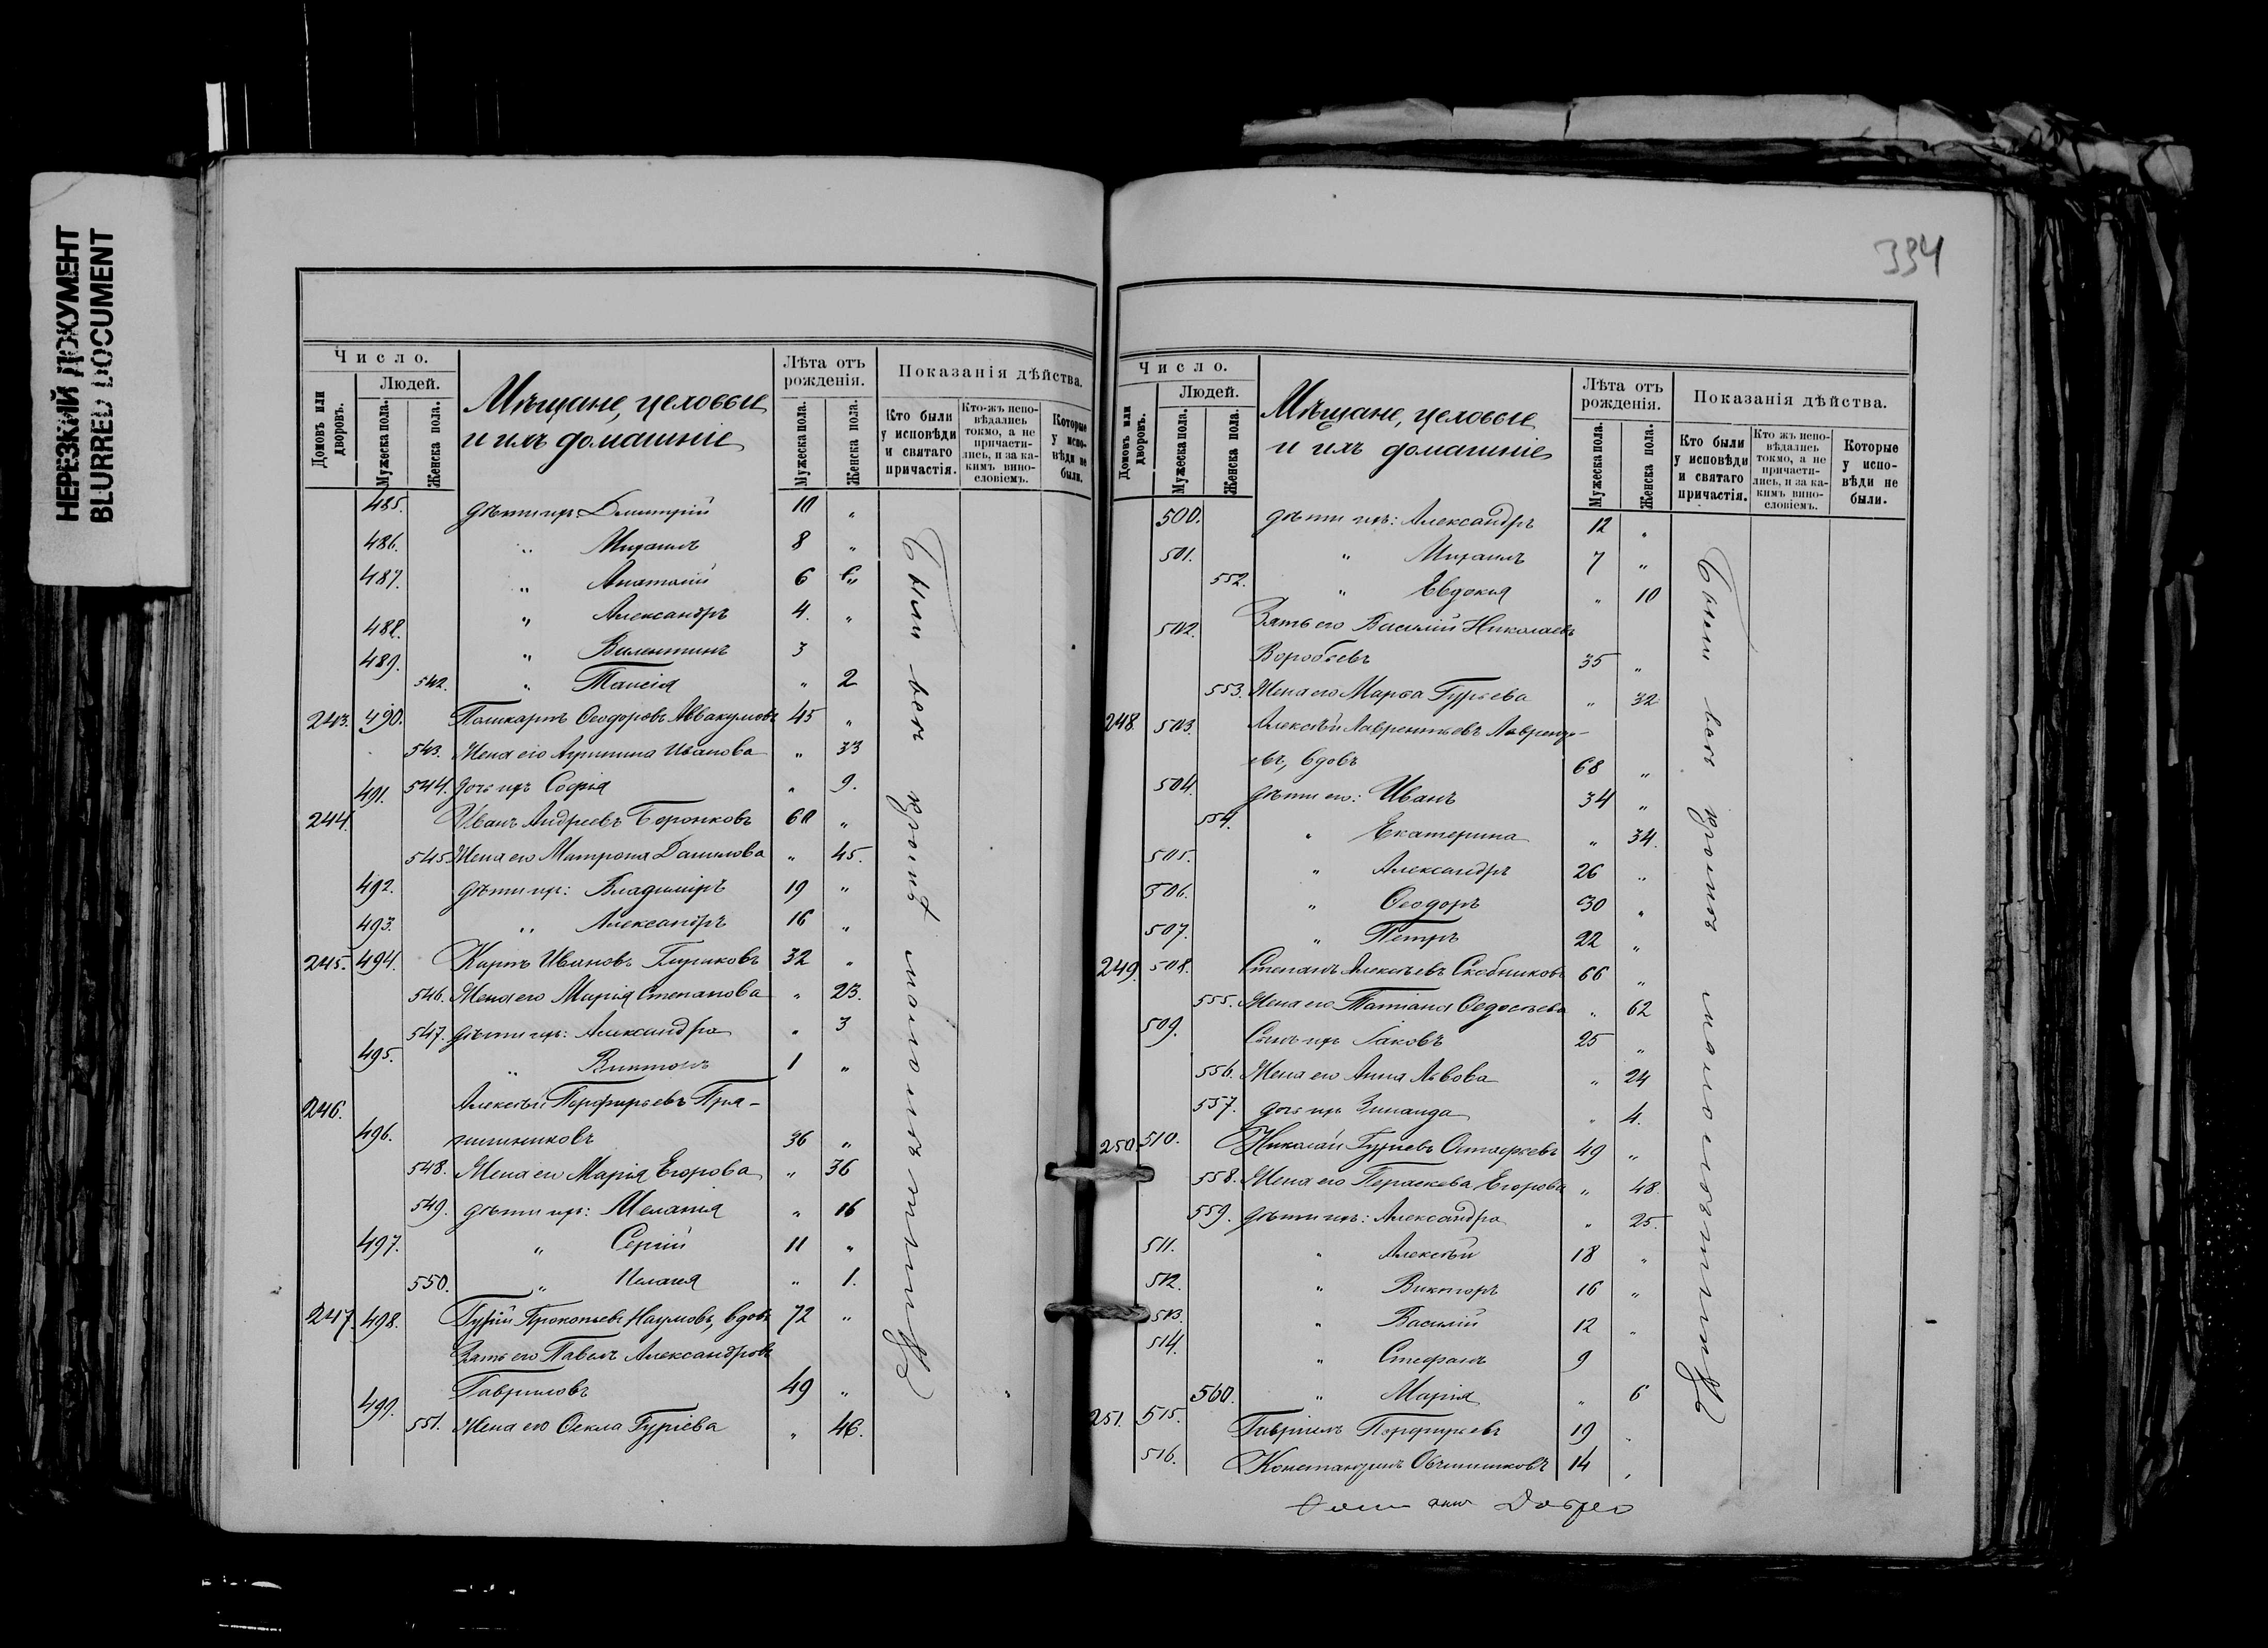 НЕРЕЗКИЙ ДОКУМЕНТ
BLURRED DOCUMENT
Число.
Домовъ или дворовъ.
Людей.
Мужеска пола.
Женска пола.
Мѣщане, цеховые
и ихъ домашніе
Лѣта отъ рожденія.
Мужеска пола.
Женска пола.
Показанія дѣйства.
Кто были у исповѣди и святаго причастія.
Кто-жъ исповѣдались токмо, а не причастились, и за какимъ винословіемъ.
Которые у исповѣди не были.
485. дѣти ихъ: Димитрій 10 "
486. " Михаилъ 8 "
487. " Анатолій 6 "
488. " Александръ 4. "
489. " Валентинъ 3
542. " Таисія " 2
243. 490. Поликарпъ Ѳеодоровъ Аввакумовъ 45 "
543. Жена его Агрипина Иванова " 33
544. дочь ихъ Софія " 9.
244. 491. Иванъ Андреевъ Боронковъ 60 "
545. Жена его Матрона Данилова " 45.
492. дѣти ихъ: Владиміръ 19 "
493. " Александръ 16 "
245. 494. Карпъ Ивановъ 32 "
546. Жена его Марія Степанова " 23.
547. дѣти ихъ: Александра " 3
495. " 1 "
246. Алексѣй Порфирьевъ Пря-
496. нишниковъ 36 "
548. Жена его Марія Егорова " 36
549. дѣти ихъ: Меланія " 16
497. " Сергій 11 "
550. " Пелагія " 1.
247. 498. Гурій Прокопьевъ Наумовъ, вдовъ 72 "
Зять его Павелъ Александровъ
499. Гавриловъ 49 "
551. Жена его Ѳекла Гуріева " 46.
Были вси кромѣ малолѣтнихъ
334
Число.
Домовъ или дворовъ.
Людей.
Мужеска пола.
Женска пола.
Мѣщане, цеховые
и ихъ домашніе
Лѣта отъ рожденія.
Мужеска пола.
Женска пола.
Показанія дѣйства.
Кто были у исповѣди и святаго причастія.
Кто жъ исповѣдались токмо, а не причастились, и за какимъ винословіемъ.
Которые у исповѣди не были.
500. дѣти ихъ: Александръ 12 "
501. " Михаилъ 7 "
552. " Евдокія " 10
502. Зять его Василій Николаевъ
Воробьевъ 35 "
553. Жена его Марѳа Гурьева " 32
248. 503. Алексѣй Лаврентьевъ Лавренть-
евъ, вдовъ 68 "
504. дѣти его: Иванъ 34 "
554. " Екатерина " 34.
505. " Александръ 26 "
506. " Ѳеодоръ 30 "
507. " Петръ 22 "
249. 508. Степанъ Алексѣевъ Скобниковъ 66 "
555. Жена его Татіана Ѳедосѣева " 62
509. Сынъ ихъ Іаковъ 25 "
556. Жена его Анна Львова " 24
557. дочь ихъ Зинаида " 4.
250. 510. Николай Гурьевъ Астафьевъ 49 "
558. Жена его Параскева Егорова " 48
559. дѣти ихъ: Александра " 25.
511. " Алексѣй 18 "
512. " Викторъ 16 "
513. " Василій 12 "
514. " Стефанъ 9
560. " Марія " 6
251. 515. Гавріилъ Порфирьевъ 19 "
516. Константинъ Овчинниковъ 14 "
Были вси кромѣ малолѣтнихъ